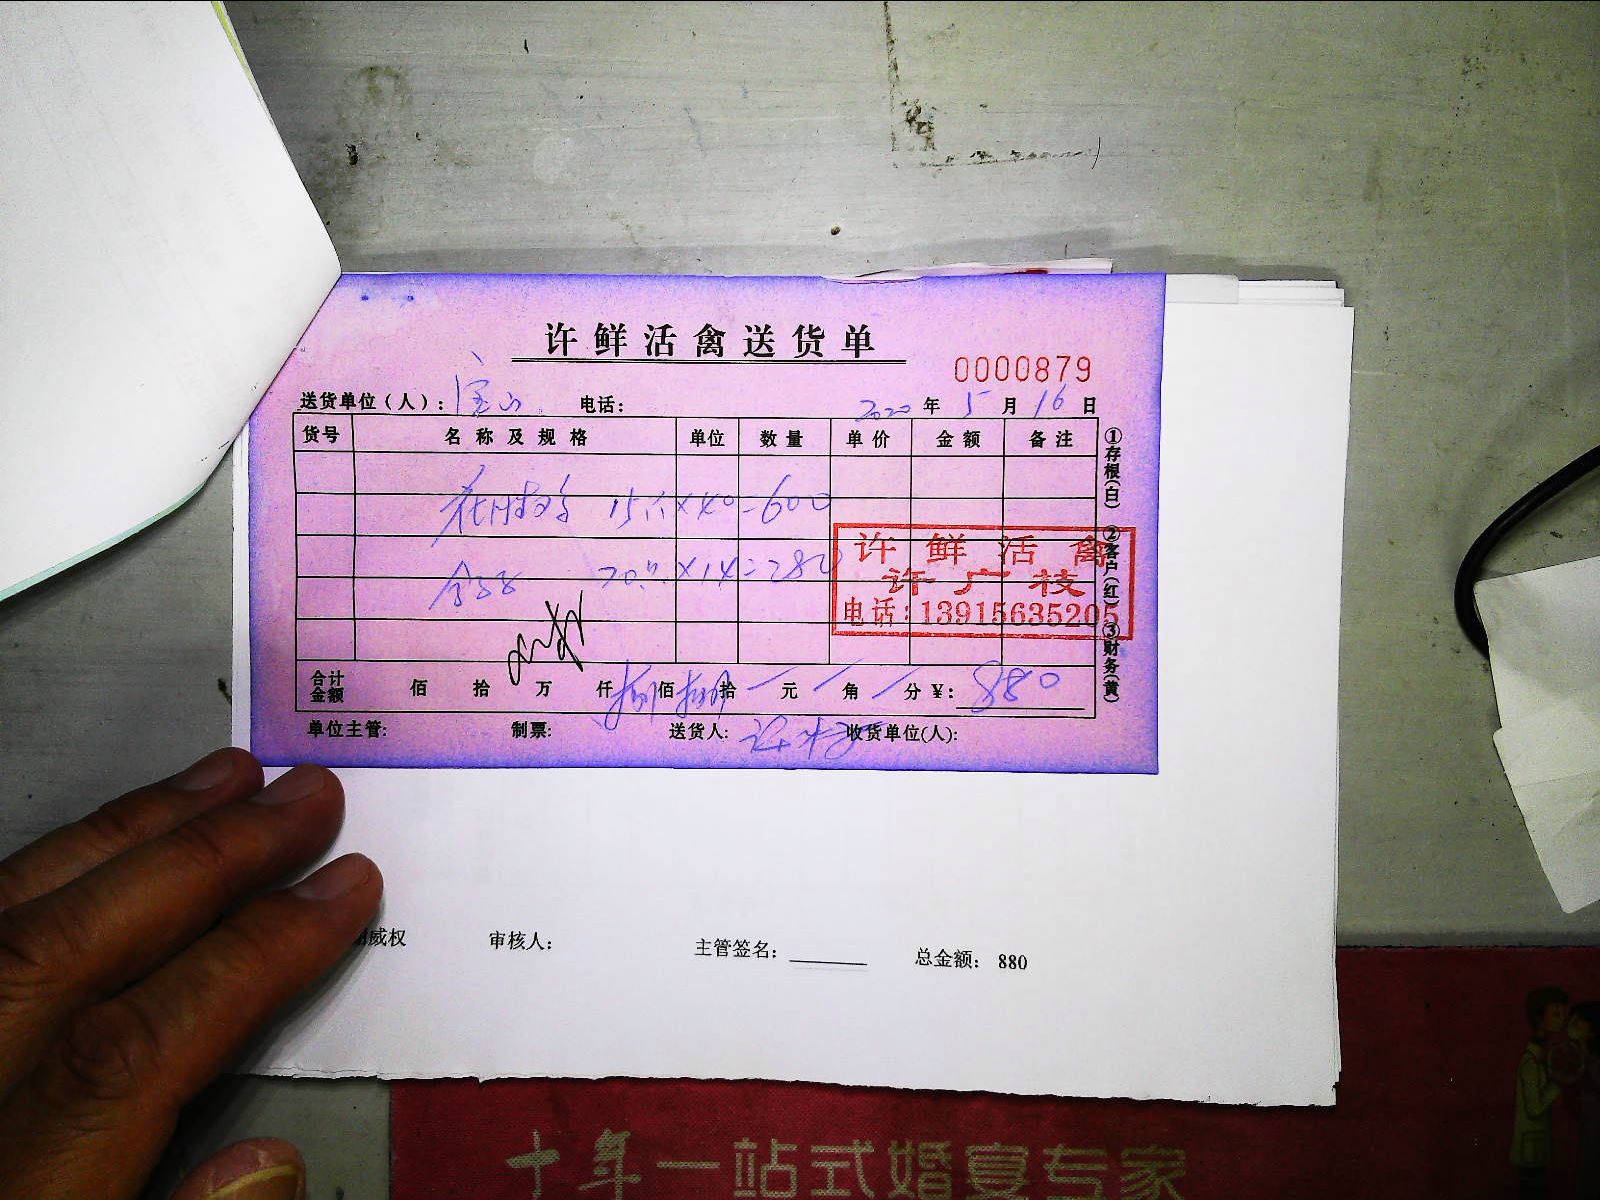 许鲜活禽送货单
0000879
送货单位(人): 宝山 电话: 2020年5月16日
货号 名称及规格 单位 数量 单价 金额 备注
15只×40=600
20只×14=280
许鲜活禽
许广枝
电话:13915635205
合计金额 佰 拾 万 仟 捌佰捌拾 元 角 分 ¥: 880
单位主管: 制票: 送货人: 许 收货单位(人):
①存根(白) ②客户(红) ③财务(黄)
威权 审核人: 主管签名: 总金额: 880
十年一站式婚宴专家